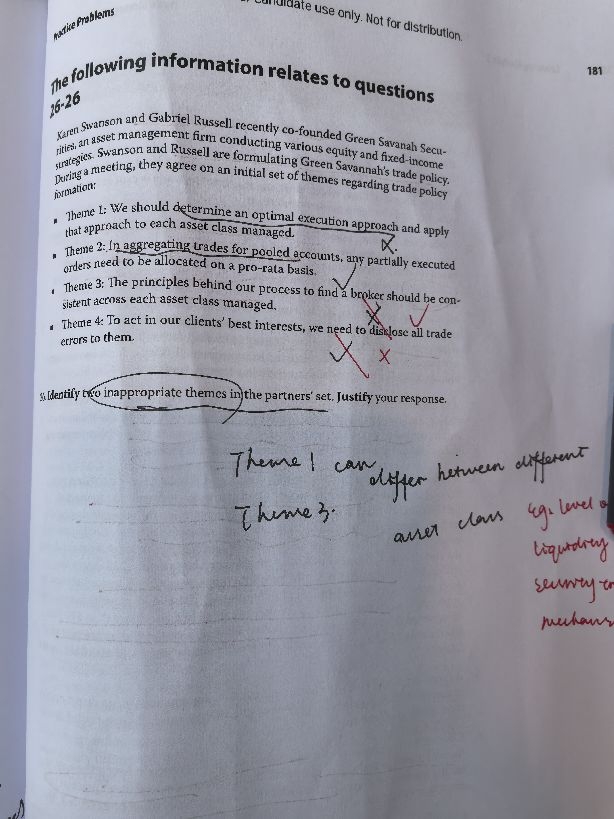 Practice Problems
Candidate use only. Not for distribution.
181
The following information relates to questions
26-26
Karen Swanson and Gabriel Russell recently co-founded Green Savanah Secu-
rities, an asset management firm conducting various equity and fixed-income
strategies. Swanson and Russell are formulating Green Savannah's trade policy.
During a meeting, they agree on an initial set of themes regarding trade policy
formation:
▪ Theme 1: We should determine an optimal execution approach and apply
that approach to each asset class managed.
▪ Theme 2: In aggregating trades for pooled accounts, any partially executed
orders need to be allocated on a pro-rata basis.
▪ Theme 3: The principles behind our process to find a broker should be con-
sistent across each asset class managed.
▪ Theme 4: To act in our clients' best interests, we need to disclose all trade
errors to them.
Identify two inappropriate themes in the partners' set. Justify your response.
Theme 1 can differ between different
Theme 3.
asset class
eg. level
liquidity